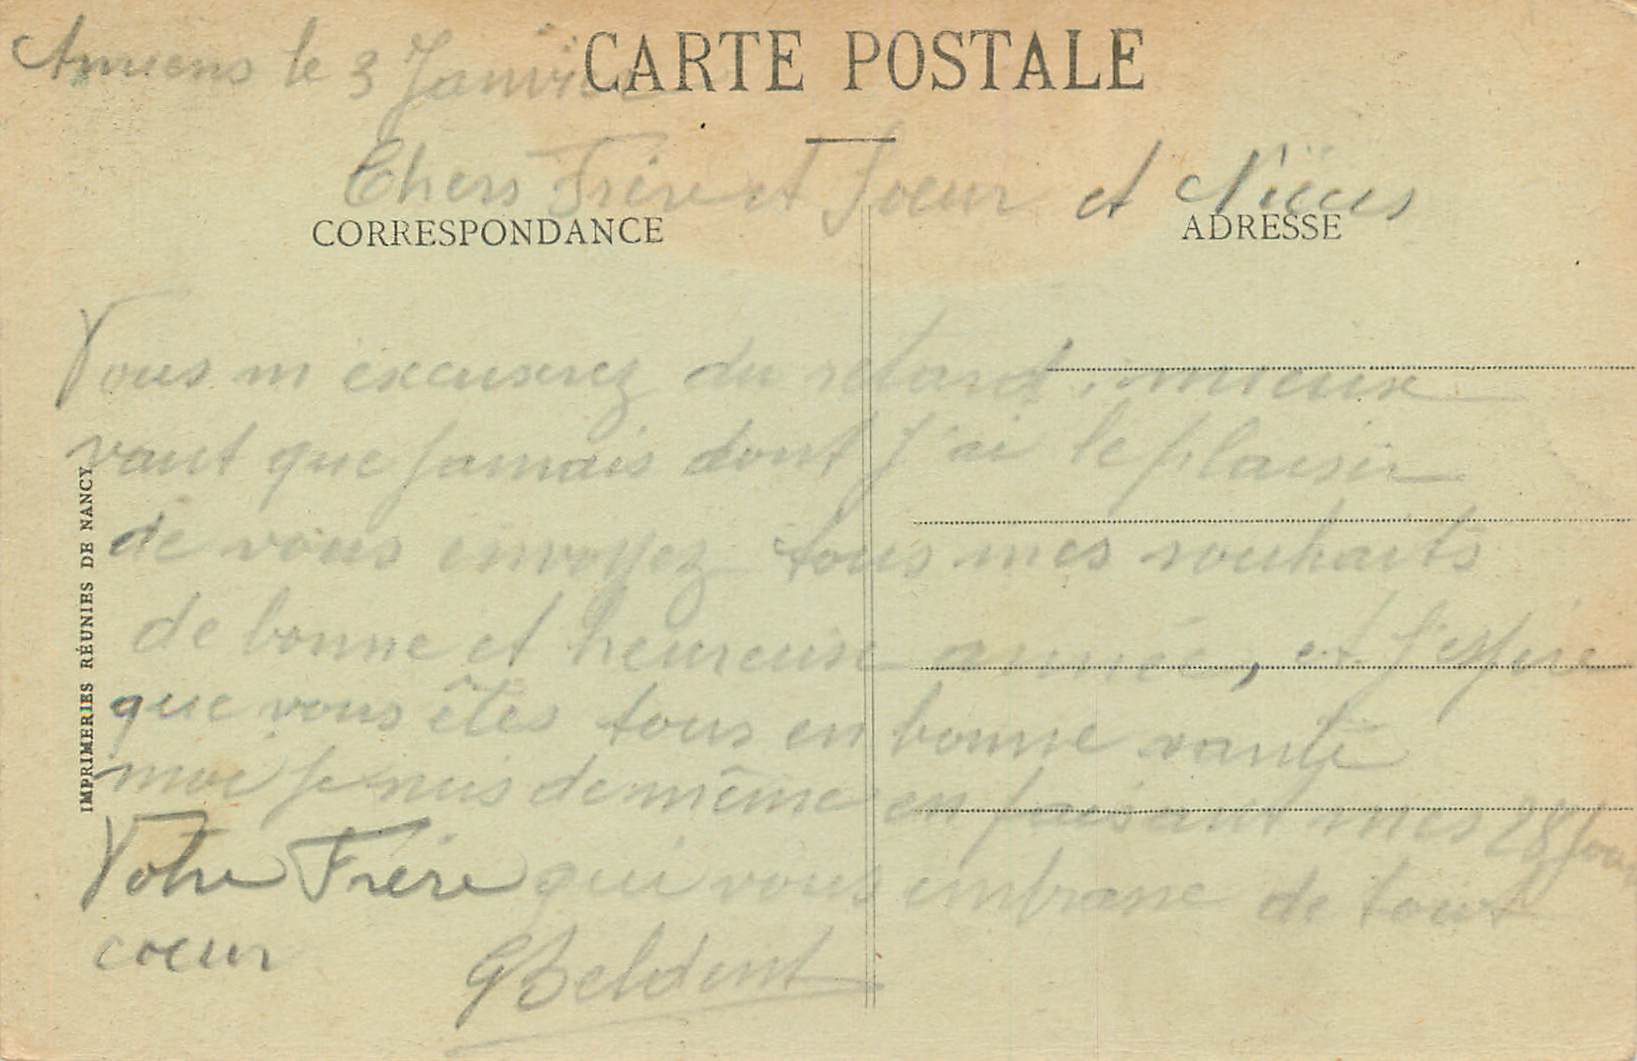 Amiens le 3 Janvier
CARTE POSTALE
Chers Frère et Soeur et Nièces
CORRESPONDANCE
ADRESSE
Vous m'excuserez du retard, mieux
vaut que jamais dont j'ai le plaisir
de vous envoyez tous mes souhaits
de bonne et heureuse année, et j'espère
que vous êtes tous en bonne santé
moi je suis de même en faisant mes 28 jours
Votre Frère qui vous embrasse de tout
coeur
G Beldent
IMPRIMERIES RÉUNIES DE NANCY